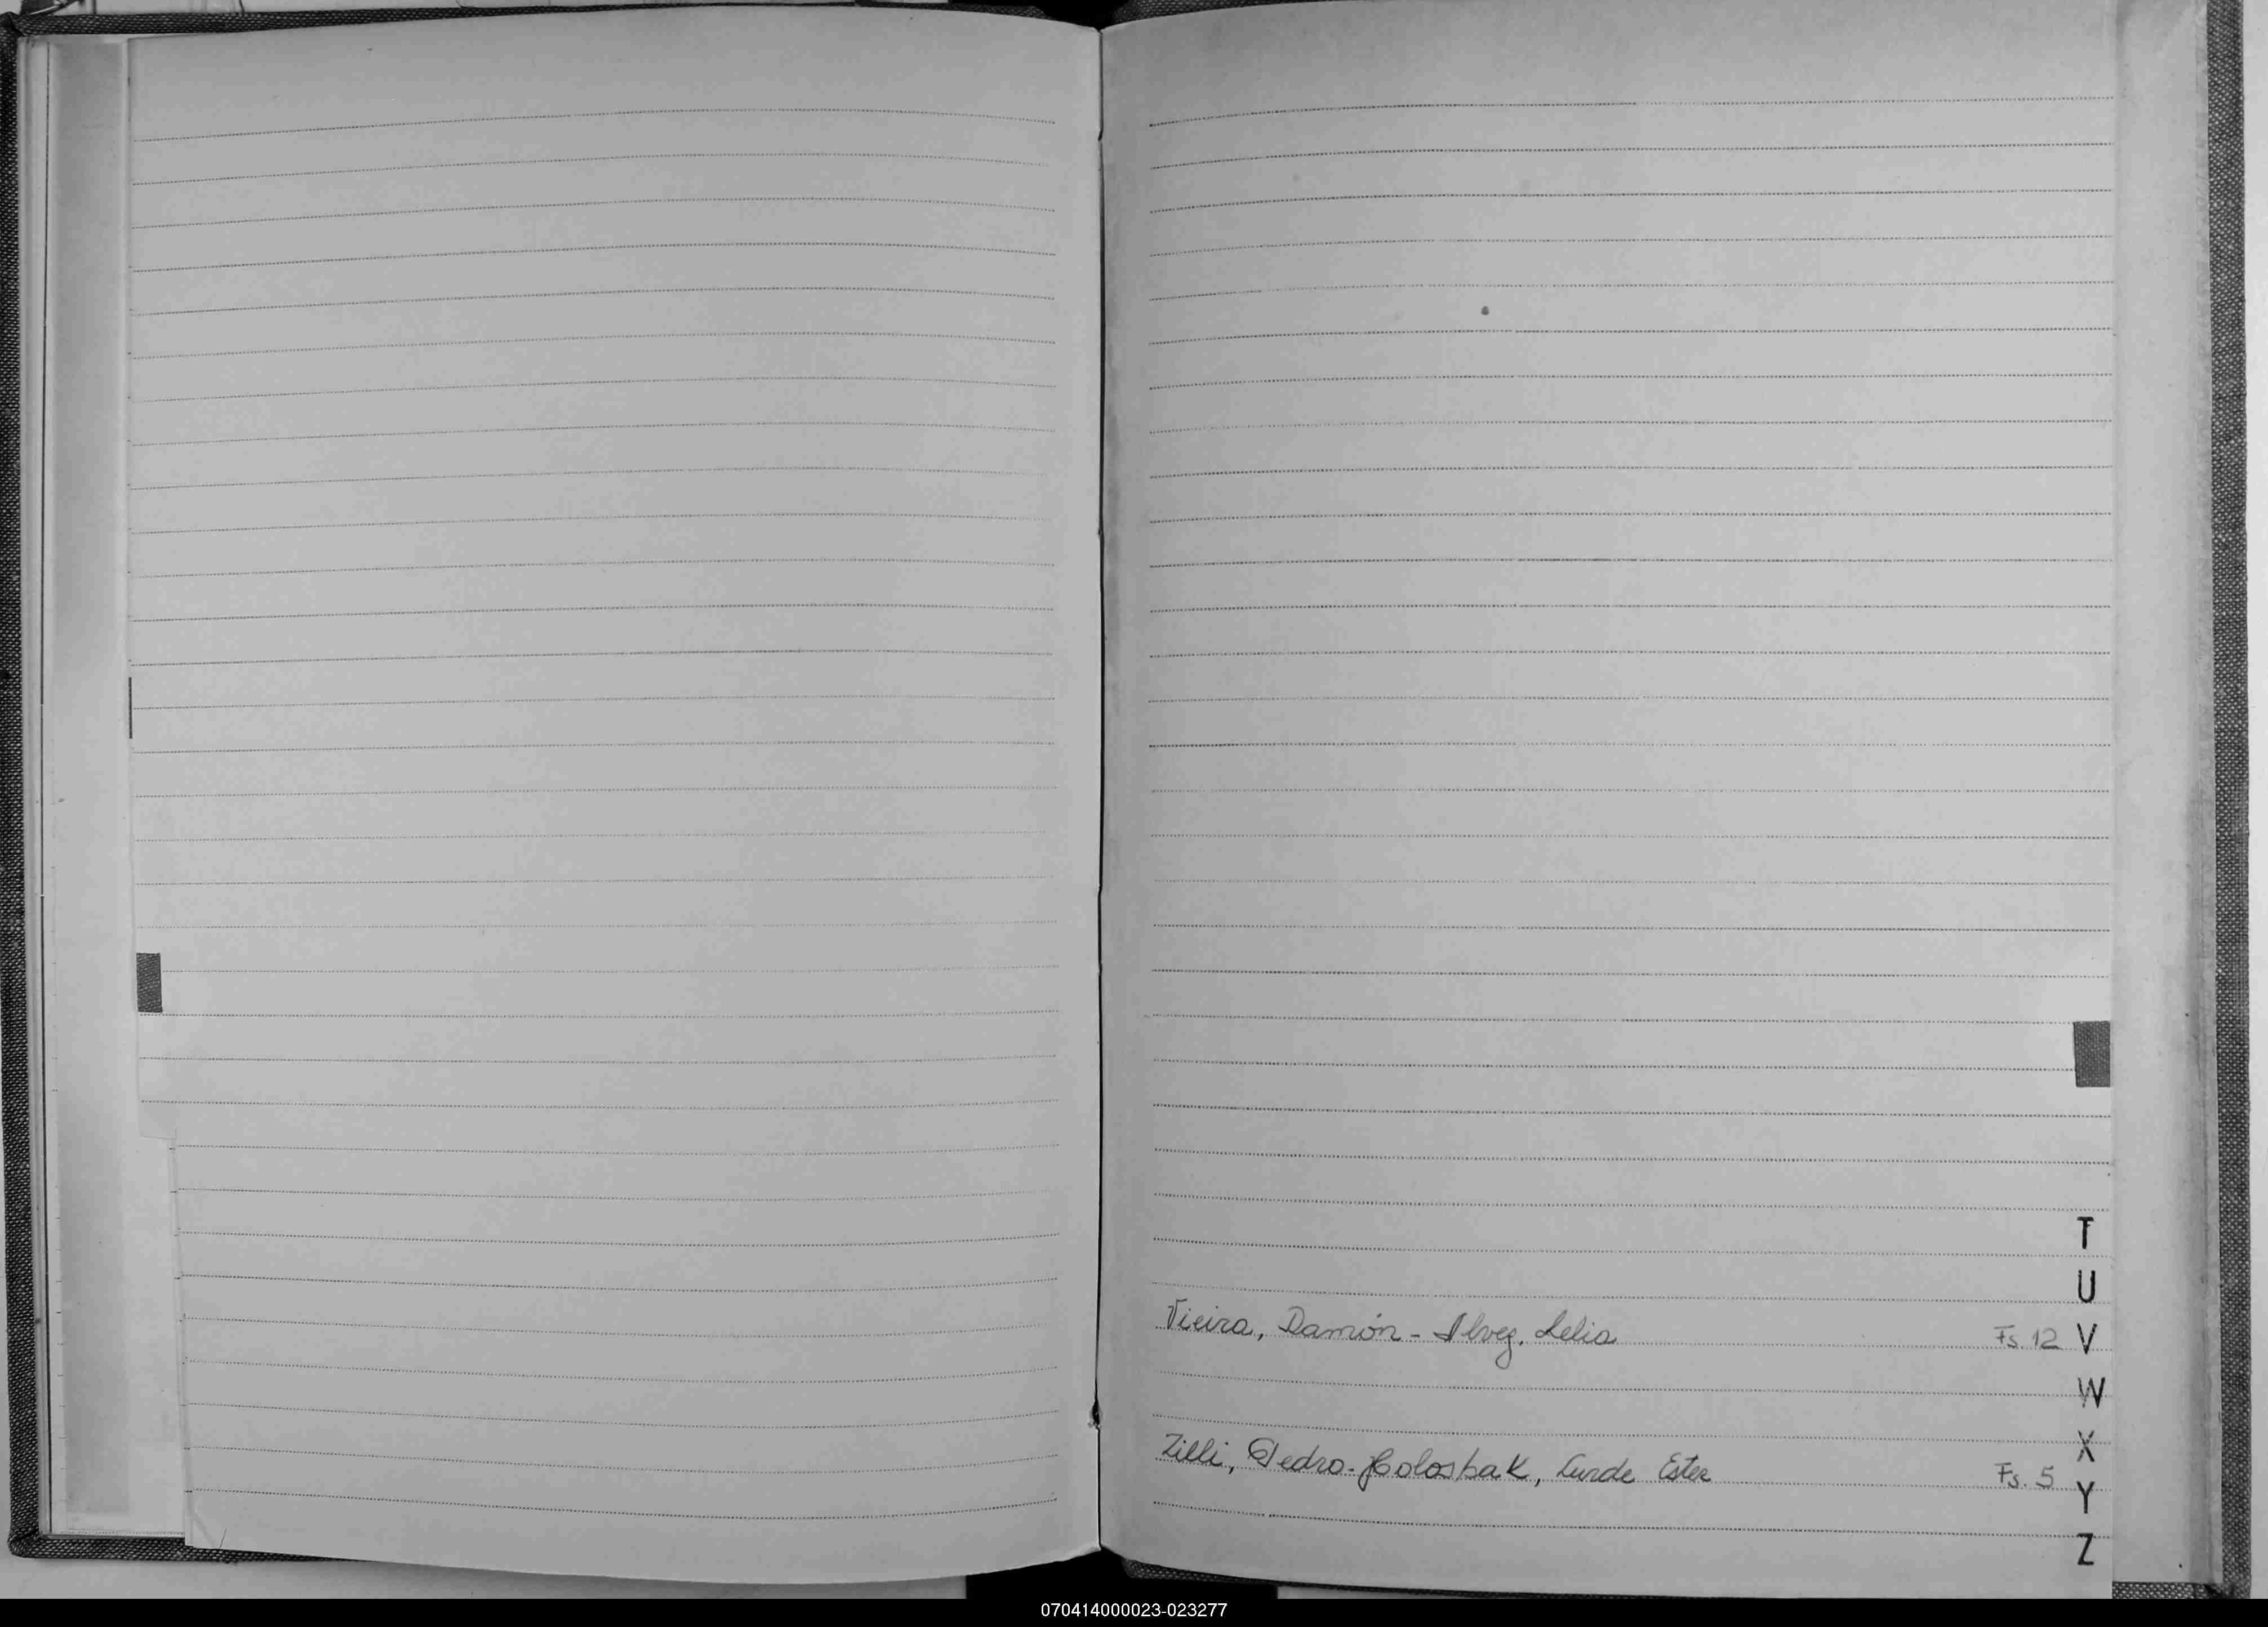 T
U
Vieira, Damón - Alvez, Lelia Fs. 12 V
W
X
Zilli, Pedro - Holosbak, Lurde Ester Fs. 5
Y
Z
070414000023-023277